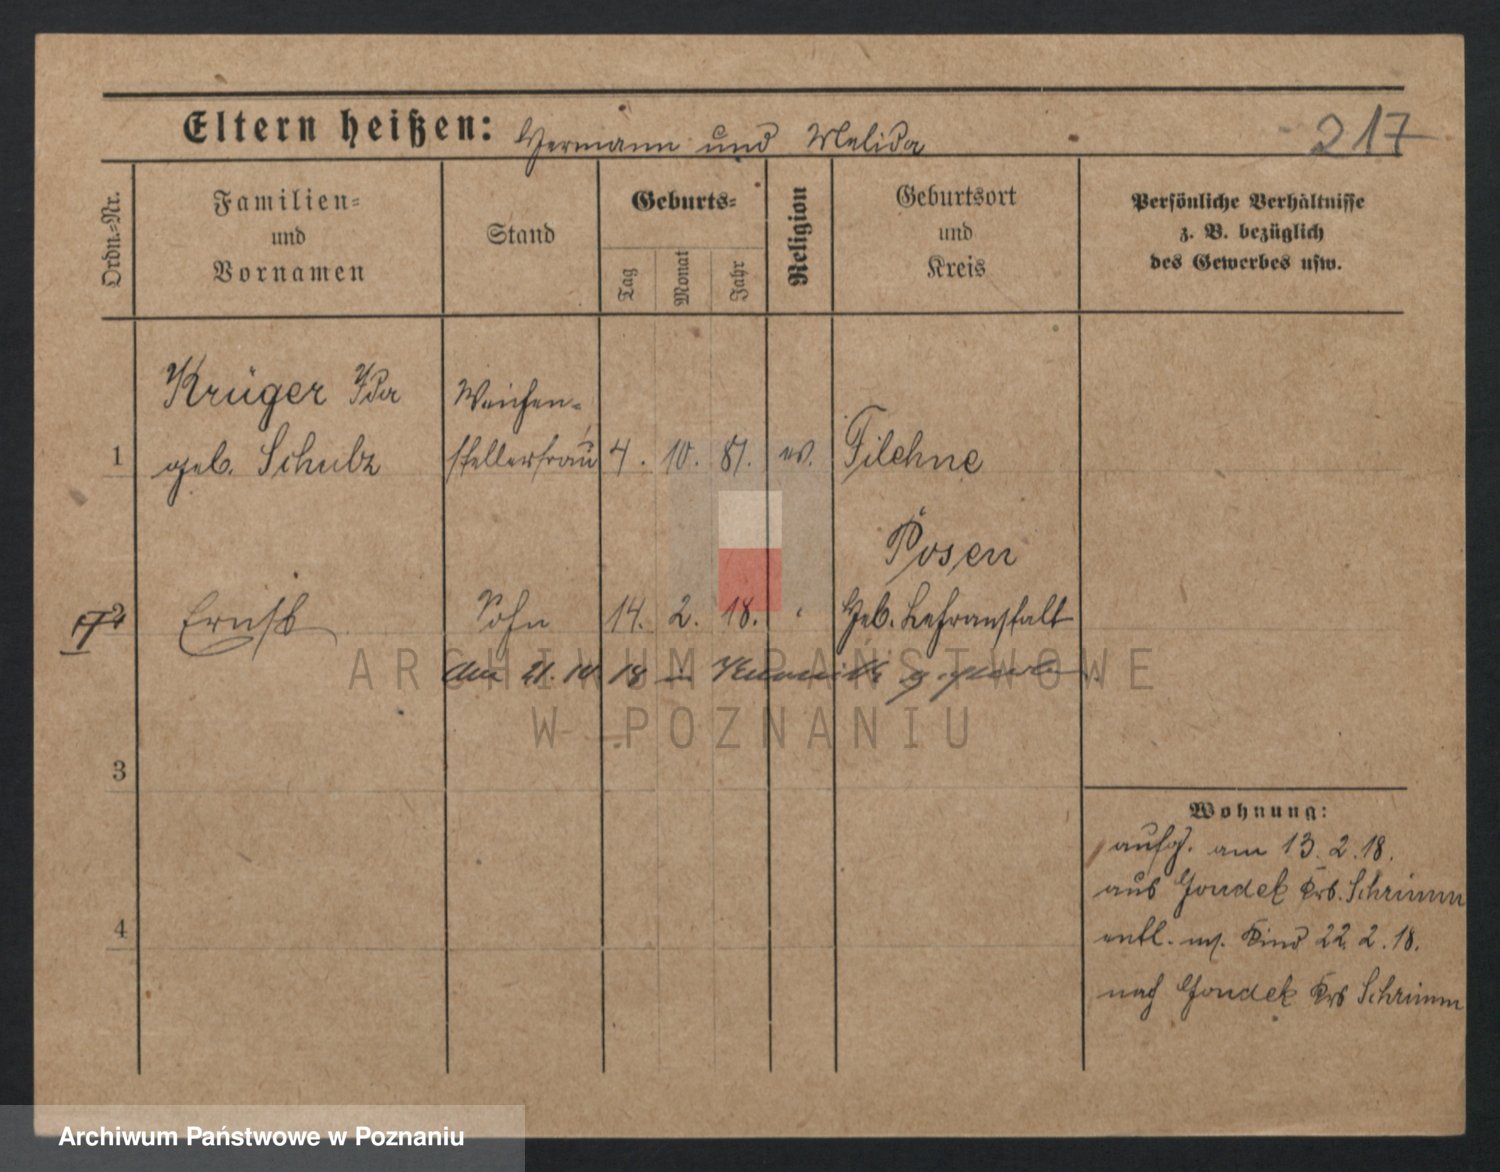 Eltern heißen: Hermann und Melida
217
Ordn.-Nr.
Familien-
und
Vornamen
Stand
Geburts-
Tag
Monat
Jahr
Religion
Geburtsort
und
Kreis
Persönliche Verhältnisse
z. B. bezüglich
des Gewerbes usw.
Krüger Ida Weichen-
1 geb. Schulz stellerfrau 4. 10. 81. ev. Filehne
Posen
2 Ernst Sohn 14. 2. 18. Heb. Lehranstalt
am 21. 10. 18 in
ARCHIWUM PAŃSTWOWE
W POZNANIU
3
Wohnung:
aufg. am 13. 2. 18.
aus Gondek Krs. Schrimm
4
entl. m. Kind 22. 2. 18.
nach Gondek Krs Schrimm
Archiwum Państwowe w Poznaniu